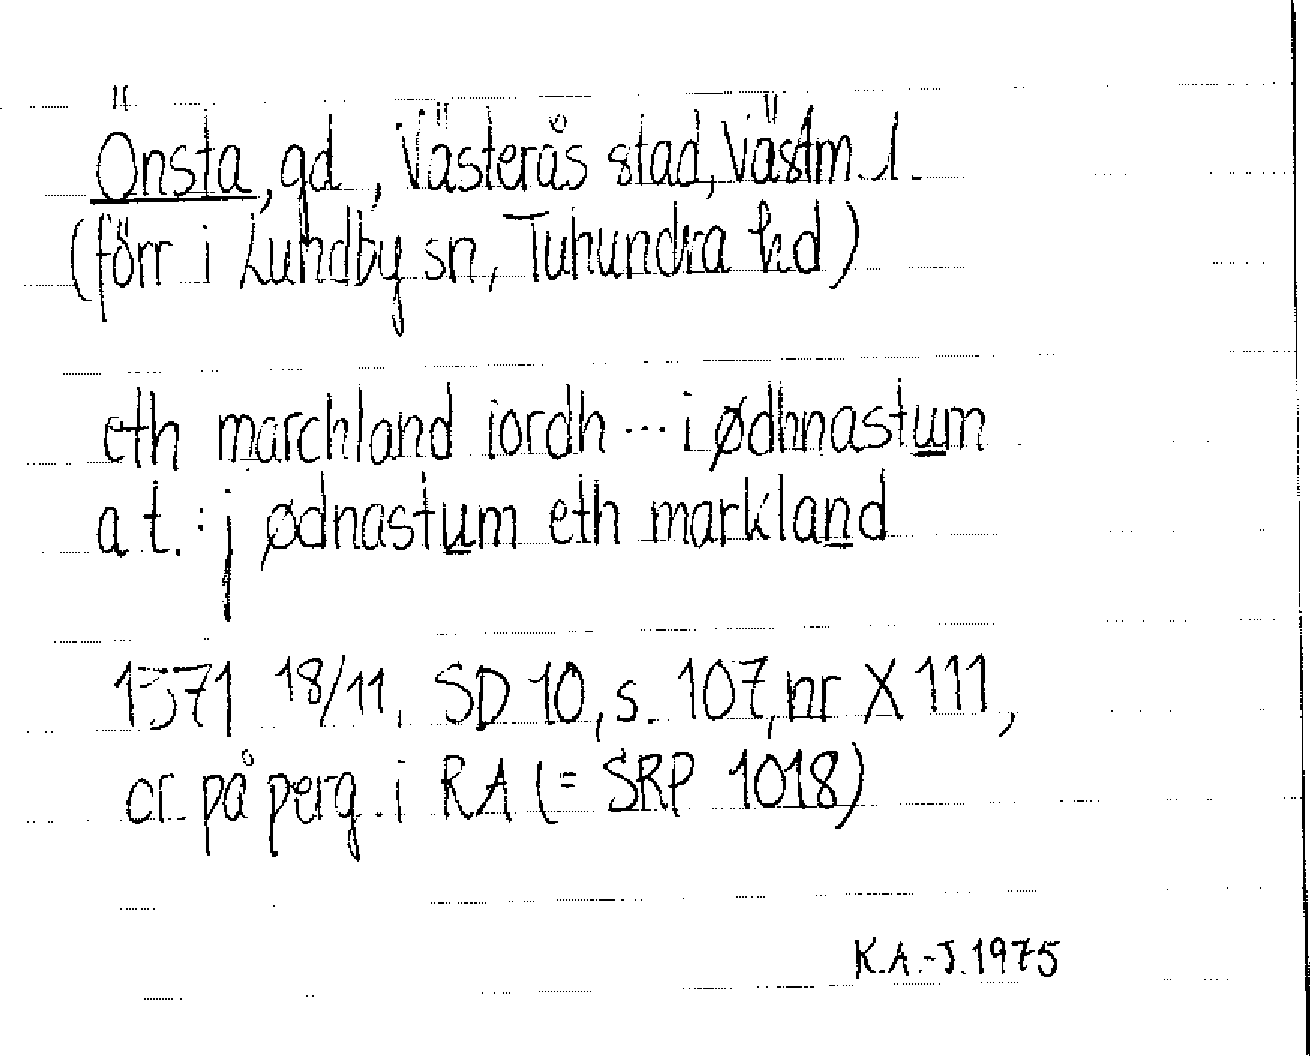 Önsta, gd, Västerås stad, Västm. l.
(förr i Lundby sn, Tuhundra hd)
eth marchland iordh ... i ødhnastum
a t. : j ødnastum eth markland
1371 18/11, SD 10, s. 107, nr X 111,
or. på perg. i RA (= SRP 1018)
K.A.-J. 1975